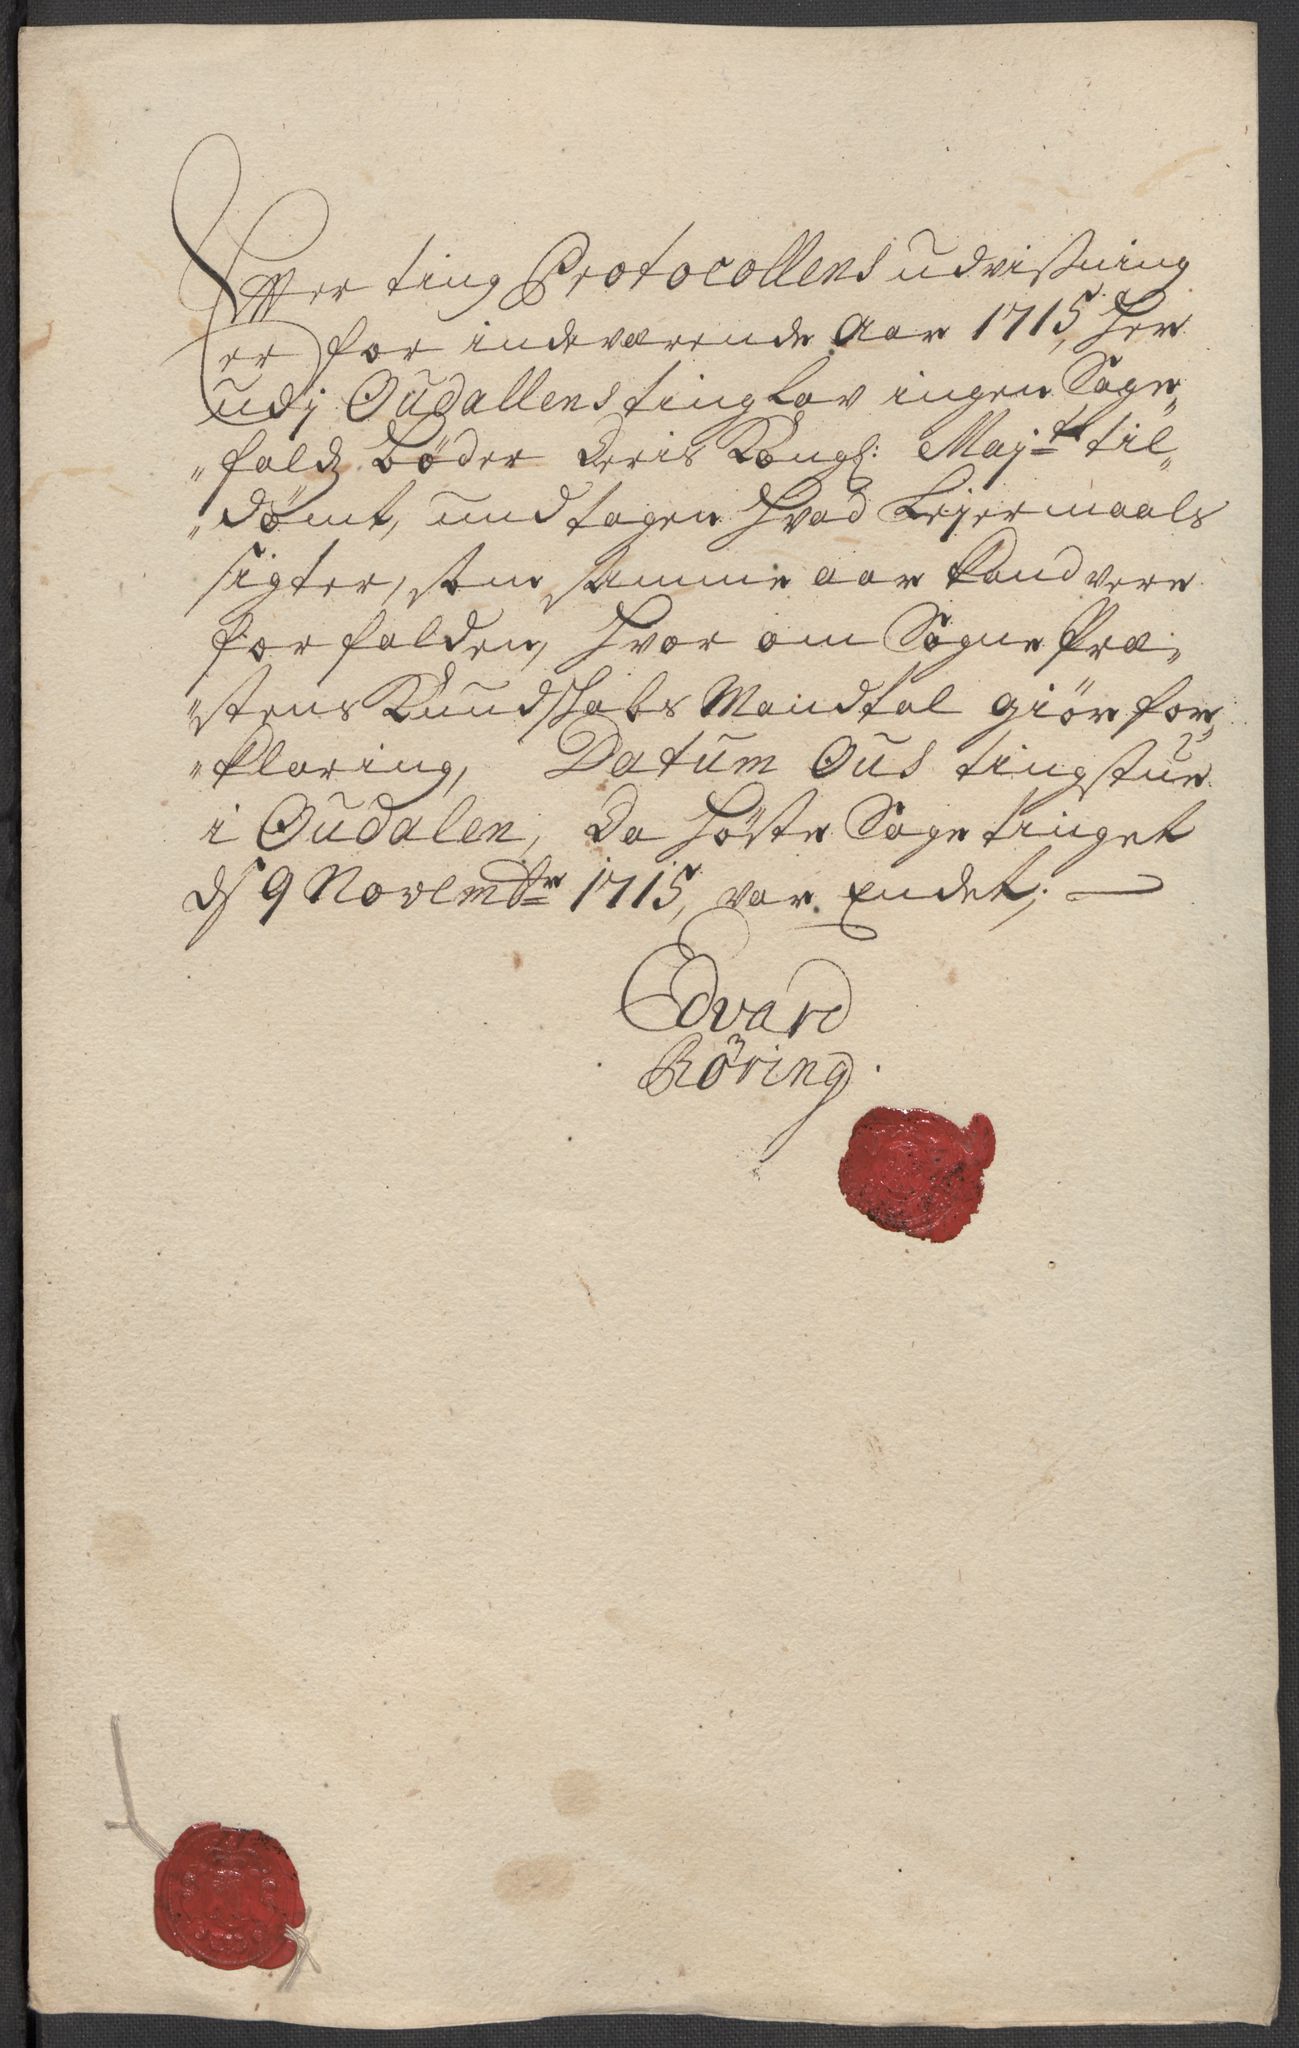 Effter ting Protocollens udvißning
er for indeværende Aar 1715, her
udj Oudallens tinglav ingen Sage„
„fald bøder Deris Kongl: Majts til„
„dømt, undtagen hvad Leiermaals
sigter, som samme aar kand vere
forfalden, hvor om Sogne Præ„
„stens Kundskabs Mandtal giør for„
„klaring, Datum Ous tingstue
i Oudalen, da Høste Sage tinget
ds 9 Novembr 1715, var Endet;
Edvard
Röring